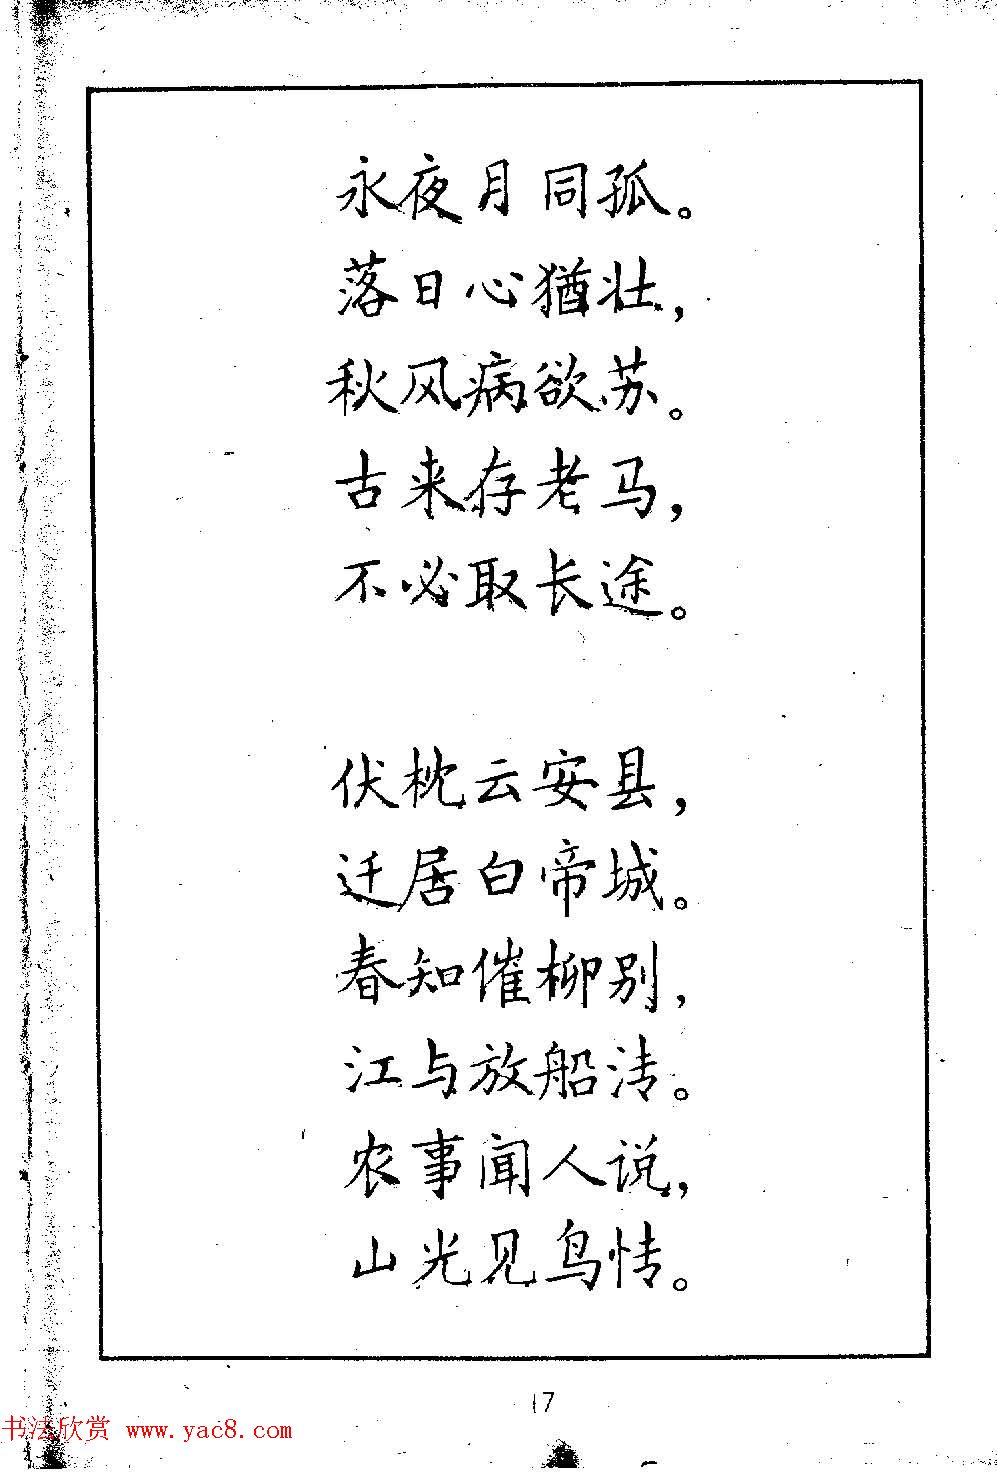 永夜月同孤。
落日心犹壮，
秋风病欲苏。
古来存老马，
不必取长途。
伏枕云安县，
迁居白帝城。
春知催柳别，
江与放船清。
农事闻人说，
山光见鸟情。
17
书法欣赏 www.yac8.com